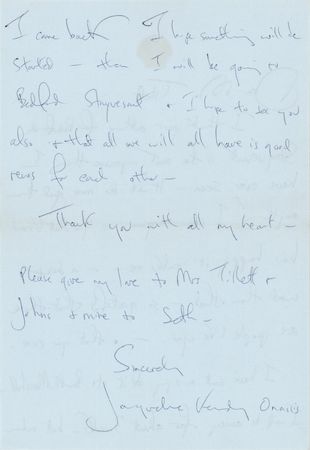 I came back I hope something will be
started — then I will be going to
Bedford Stuyvesant & I hope to see you
also & that all we will all have is good
news for each other —
Thank you with all my heart —
Please give my love to Mrs. Tillett &
Johns & mine to Seth —
Sincerely
Jacqueline Kennedy Onassis